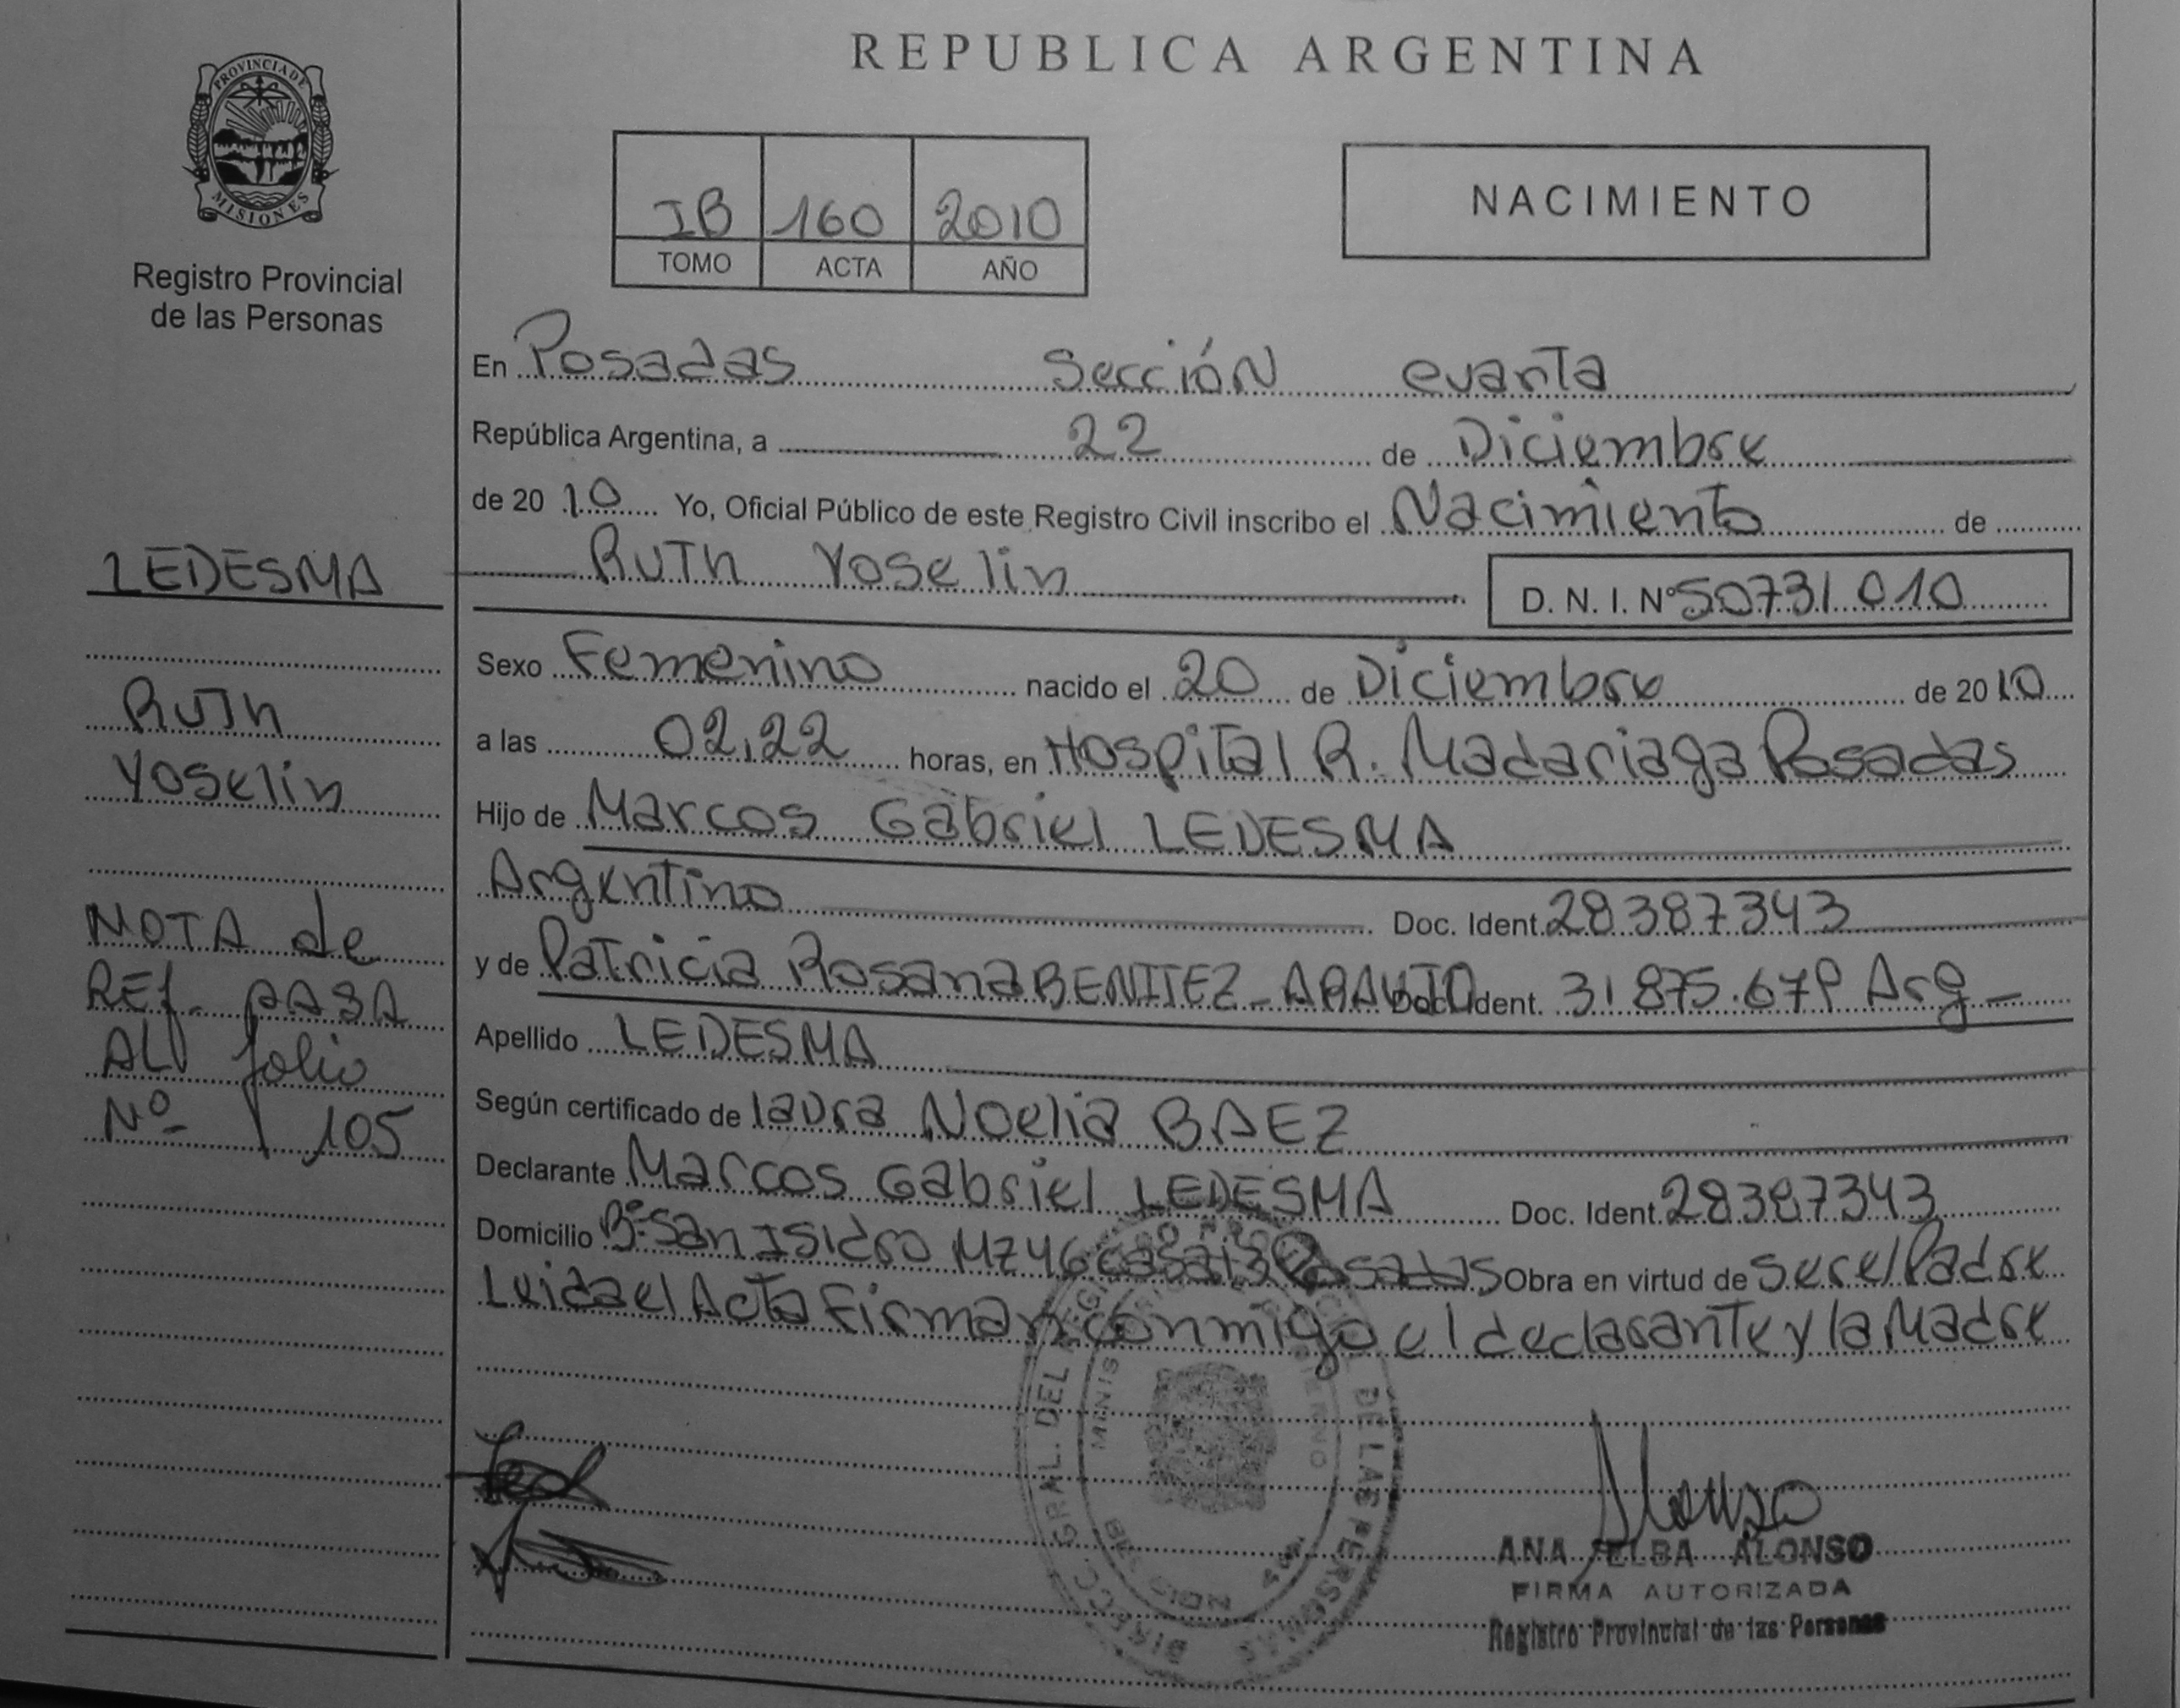 REPUBLICA ARGENTINA
PROVINCIA DE
MISIONES
Registro Provincial
de las Personas
IB 160 2010
TOMO ACTA AÑO
NACIMIENTO
En Posadas Sección cuarta
República Argentina, a 22 de Diciembre
de 2010 Yo, Oficial Público de este Registro Civil inscribo el Nacimiento de
Ruth Yoselin D. N. I. Nº 50731010
Sexo Femenino nacido el 20 de Diciembre de 2010
a las 02,22 horas, en Hospital R. Madariaga Posadas
Hijo de Marcos Gabriel LEDESMA
Argentino Doc. Ident. 28387343
y de Patricia Rosana BENITEZ - ARAUJO Doc. Ident. 31 875.679 Arg -
Apellido LEDESMA
Según certificado de laura Noelia BAEZ
Declarante Marcos Gabriel LEDESMA Doc. Ident. 28387343
Domicilio Bº San Isidro Mz 46 casa 13 Posadas Obra en virtud de ser el Padre
Leida el Acta Firman conmigo el declarante y la Madre
LEDESMA
Ruth
Yoselin
NOTA de
REf. PASA
AL folio
Nº 105
DIRECC. GRAL. DEL REGISTRO DE LAS PERSONAS
Alonso
ANA ELBA ALONSO
FIRMA AUTORIZADA
Registro Provincial de las Personas